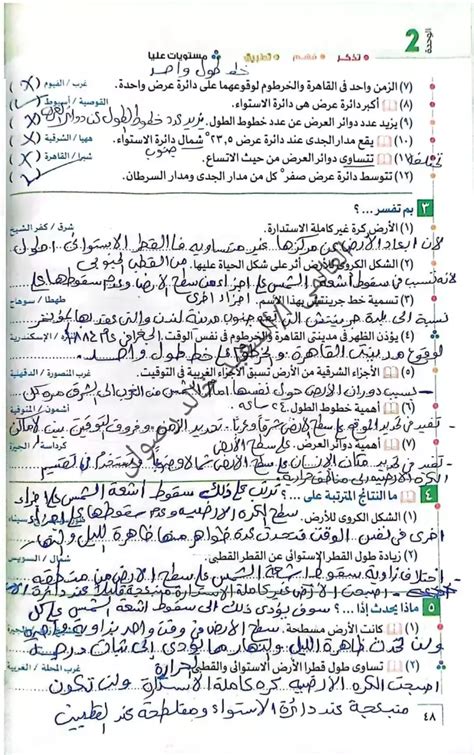 الوحدة 2
• تذكر • فهم • تطبيق • مستويات عليا
خط طول واحد
(٧) الزمن واحد فى القاهرة والخرطوم لوقوعهما على دائرة عرض واحدة. غرب / الفيوم (X)
(٨) أكبر دائرة عرض هى دائرة الاستواء. القوصية / أسيوط (✓)
(٩) يزيد عدد دوائر العرض عن عدد خطوط الطول. يزيد عدد خطوط الطول عن دوائر العرض (X)
(١٠) يقع مدار الجدى عند دائرة عرض ٢٣,٥° شمال دائرة الاستواء. ههيا / الشرقية (X)
جنوب
(١١) تتساوى دوائر العرض من حيث الاتساع. شبرا / القاهرة (X)
(١٢) تتوسط دائرة عرض صفر° كل من مدار الجدى ومدار السرطان. (✓)
٣ بم تفسر ...؟
(١) الأرض كرة غير كاملة الاستدارة. شرق / كفر الشيخ
لأن ابعاد الأرض عن مركزها غير متساوية فالقطر الاستوائى اطول
من القطب
(٢) الشكل الكروى للأرض أثر على شكل الحياة عليها.
لانه تسبب فى سقوط أشعة الشمس على اجزاء من سطح الارض وعدم سقوطها على
اجزاء اخرى
(٣) تسمية خط جرينتش بهذا الاسم. طهطا / سوهاج
نسبة الى بلدة جرينتش جنوب مدينة لندن والتى عقد بها مؤتمر
الجغرافى عام ١٨٨٤
(٤) يؤذن الظهر فى مدينتى القاهرة والخرطوم فى نفس الوقت. الإسكندرية
لوقوع مدينتى القاهرة والخرطوم على خط طول واحد
(٥) الأجزاء الشرقية من الأرض تسبق الأجزاء الغربية فى التوقيت. غرب المنصورة / الدقهلية
بسبب دوران الأرض حول نفسها أمام الشمس من الغرب الى الشرق مرة كل
٢٤ ساعة
(٦) أهمية خطوط الطول. أشمون / المنوفية
تفيد فى تحديد الموقع على سطح الأرض شرقا وغربا - تحديد الزمن وفروق التوقيت بين الأماكن
على سطح الأرض
(٧) كرداسة / الجيزة
تفيد فى تحديد مكان الانسان على سطح الأرض شمالا وجنوبا تستخدم فى تقسيم
الكرة الارضيه الى مناطق حرارية
٤ ما النتائج المترتبة على ...؟ ترتب على ذلك سقوط اشعة الشمس على اجزاء
(١) الشكل الكروى للأرض. سطح الكرة الارضيه وعدم سقوطها على اجزاء
اخرى فى نفس الوقت فتحدث عدة ظواهر منها ظاهرة الليل والنهار
(٢) زيادة طول القطر الإستوائى عن القطر القطبى. شمال / السويس
اختلاف زاوية سقوط اشعة الشمس على سطح الارض من منطقه
اصبحت الأرض غير كاملة الاستدارة منبعجة قليلا عند دائرة
٥ ماذا يحدث إذا ...؟ سوف يؤدى ذلك الى سقوط اشعة الشمس على كل
(١) كانت الأرض مسطحة. سطح الارض فى وقت واحد بزاوية
ولن تحدث ظاهرة الليل والنهار مما يؤدى الى ثبات درجة
الحرارة
(٢) تساوى طول قطرا الأرض الأستوائى والقطبى. غرب المحلة / الغربية
اصبحت الكرة الارضيه كره كاملة الاستدارة ولن تكون
منبعجة عند دائرة الاستواء ومفلطحة عند القطبين
٤٨